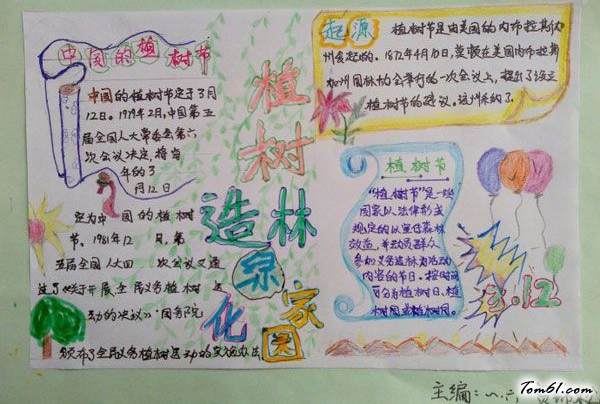 中国的植树节
中国的植树节定于3月
12日。1979年2月,中国第五
届全国人大常委会第六
次会议决定,将每
年的3
月12日
定为中国的植树
节。1981年12月,第
五届全国人大四次会议又通
过了《关于开展全民义务植树运
动的决议》。国务院
颁布了全民义务植树运动的实施办法
植树
造林
绿化
家园
起源
植树节是由美国的内布拉斯加
州发起的。1872年4月10日,莫顿在美国内布拉斯
加州园林协会举行的一次会议上,提出了设立
植树节的建议。这州采纳了
植树节
"植树节"是一些
国家以法律形式
规定的以宣传森林
效益,并动员群众
参加义务造林为活动
内容的节日。按时间
可分为植树日、植
树周或植树月。
3.12
主编:八.六
Tom61.com